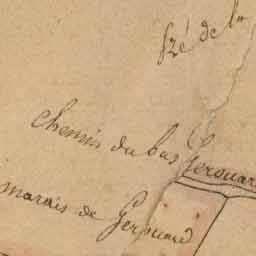 pré de la
chemin du bas Gerouar
marais de Gerouard